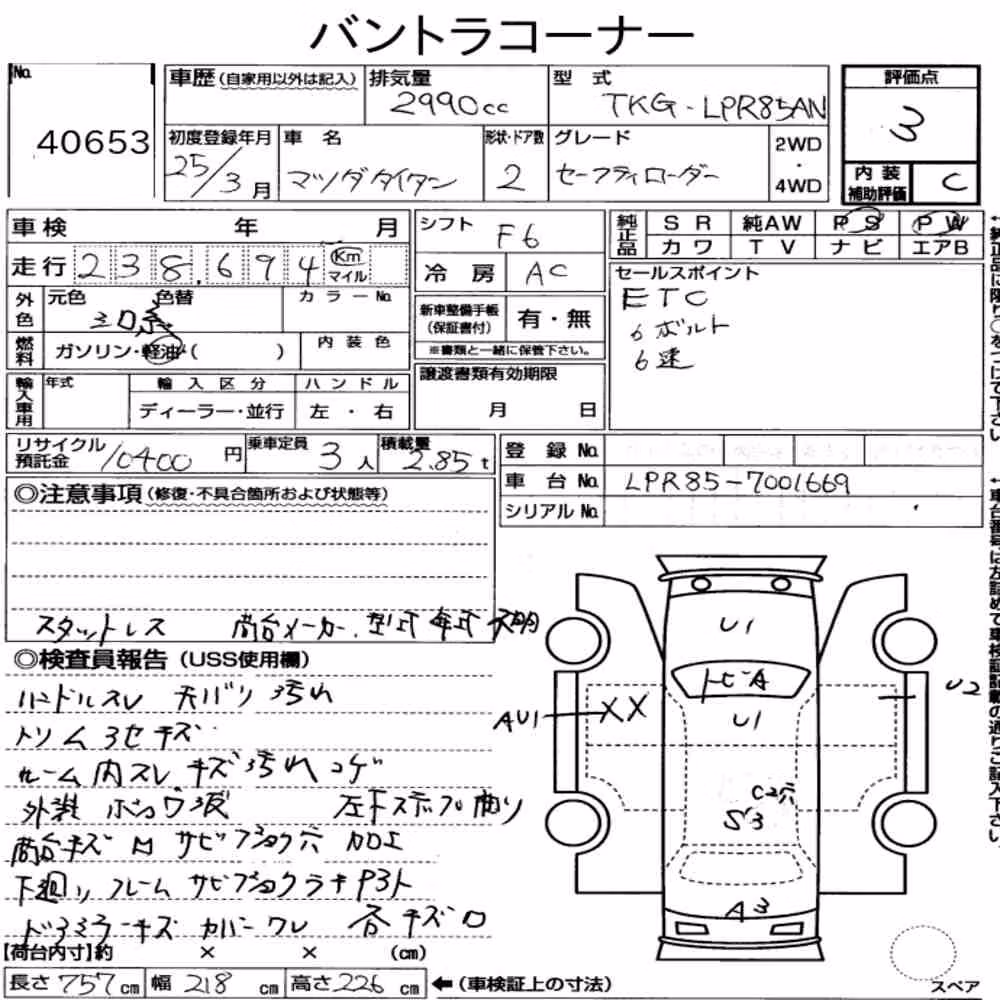 バントラコーナー
No. 40653
車歴(自家用以外は記入) 排気量 2990cc 型式 TKG-LPR85AN
評価点 3
初度登録年月 25/3月 車名 マツダタイタン 形状・ドア数 2 グレード セーフティローダー 2WD・4WD
内装補助評価 C
車検 年 月
走行 238,694 Km マイル
シフト F6
冷房 AC
純正品 SR 純AW PS PW
カワ TV ナビ エアB
外色 元色 色替 カラーNo.
燃料 ガソリン・軽油・( ) 内装色
新車整備手帳(保証書付) 有・無
※書類と一緒に保管下さい。
セールスポイント
ETC
6ボルト
6速
輸入車用 年式 輸入区分 ハンドル
ディーラー・並行 左・右
譲渡書類有効期限
月 日
リサイクル預託金 10400円 乗車定員 3人 積載量 2.85t
登録No.
車台No. LPR85-7001669
シリアルNo.
◎注意事項(修復・不具合箇所および状態等)
スタットレス 荷台メーカー、型式 年式 不明
◎検査員報告(USS使用欄)
ハンドルスレ 天バリ汚れ
トリム 3セキズ
ルーム内スレ キズ汚れコゲ
外装 左下ステップ曲り
荷台キズ ロ サビ 穴 加工
下廻り フレーム サビ
ドアミラーキズ カバーワレ 各キズロ
U1
トビA
U1
AU1 XX
U2
C2穴
S3
A3
【荷台内寸】約 × × (cm)
長さ 757cm 幅 218cm 高さ 226cm ←(車検証上の寸法)
スペア